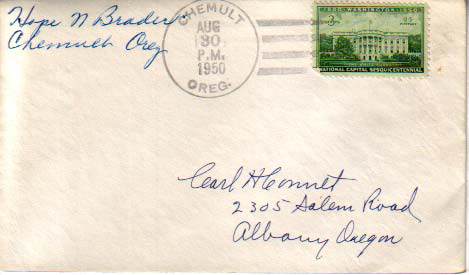 Hope N Brader
Chemult Oreg.
CHEMULT
AUG
30
P.M.
1950
OREG.
1800 WASHINGTON 1950
3¢
U.S. POSTAGE
NATIONAL CAPITAL SESQUICENTENNIAL
Carl H
2305 Salem Road
Albany Oregon